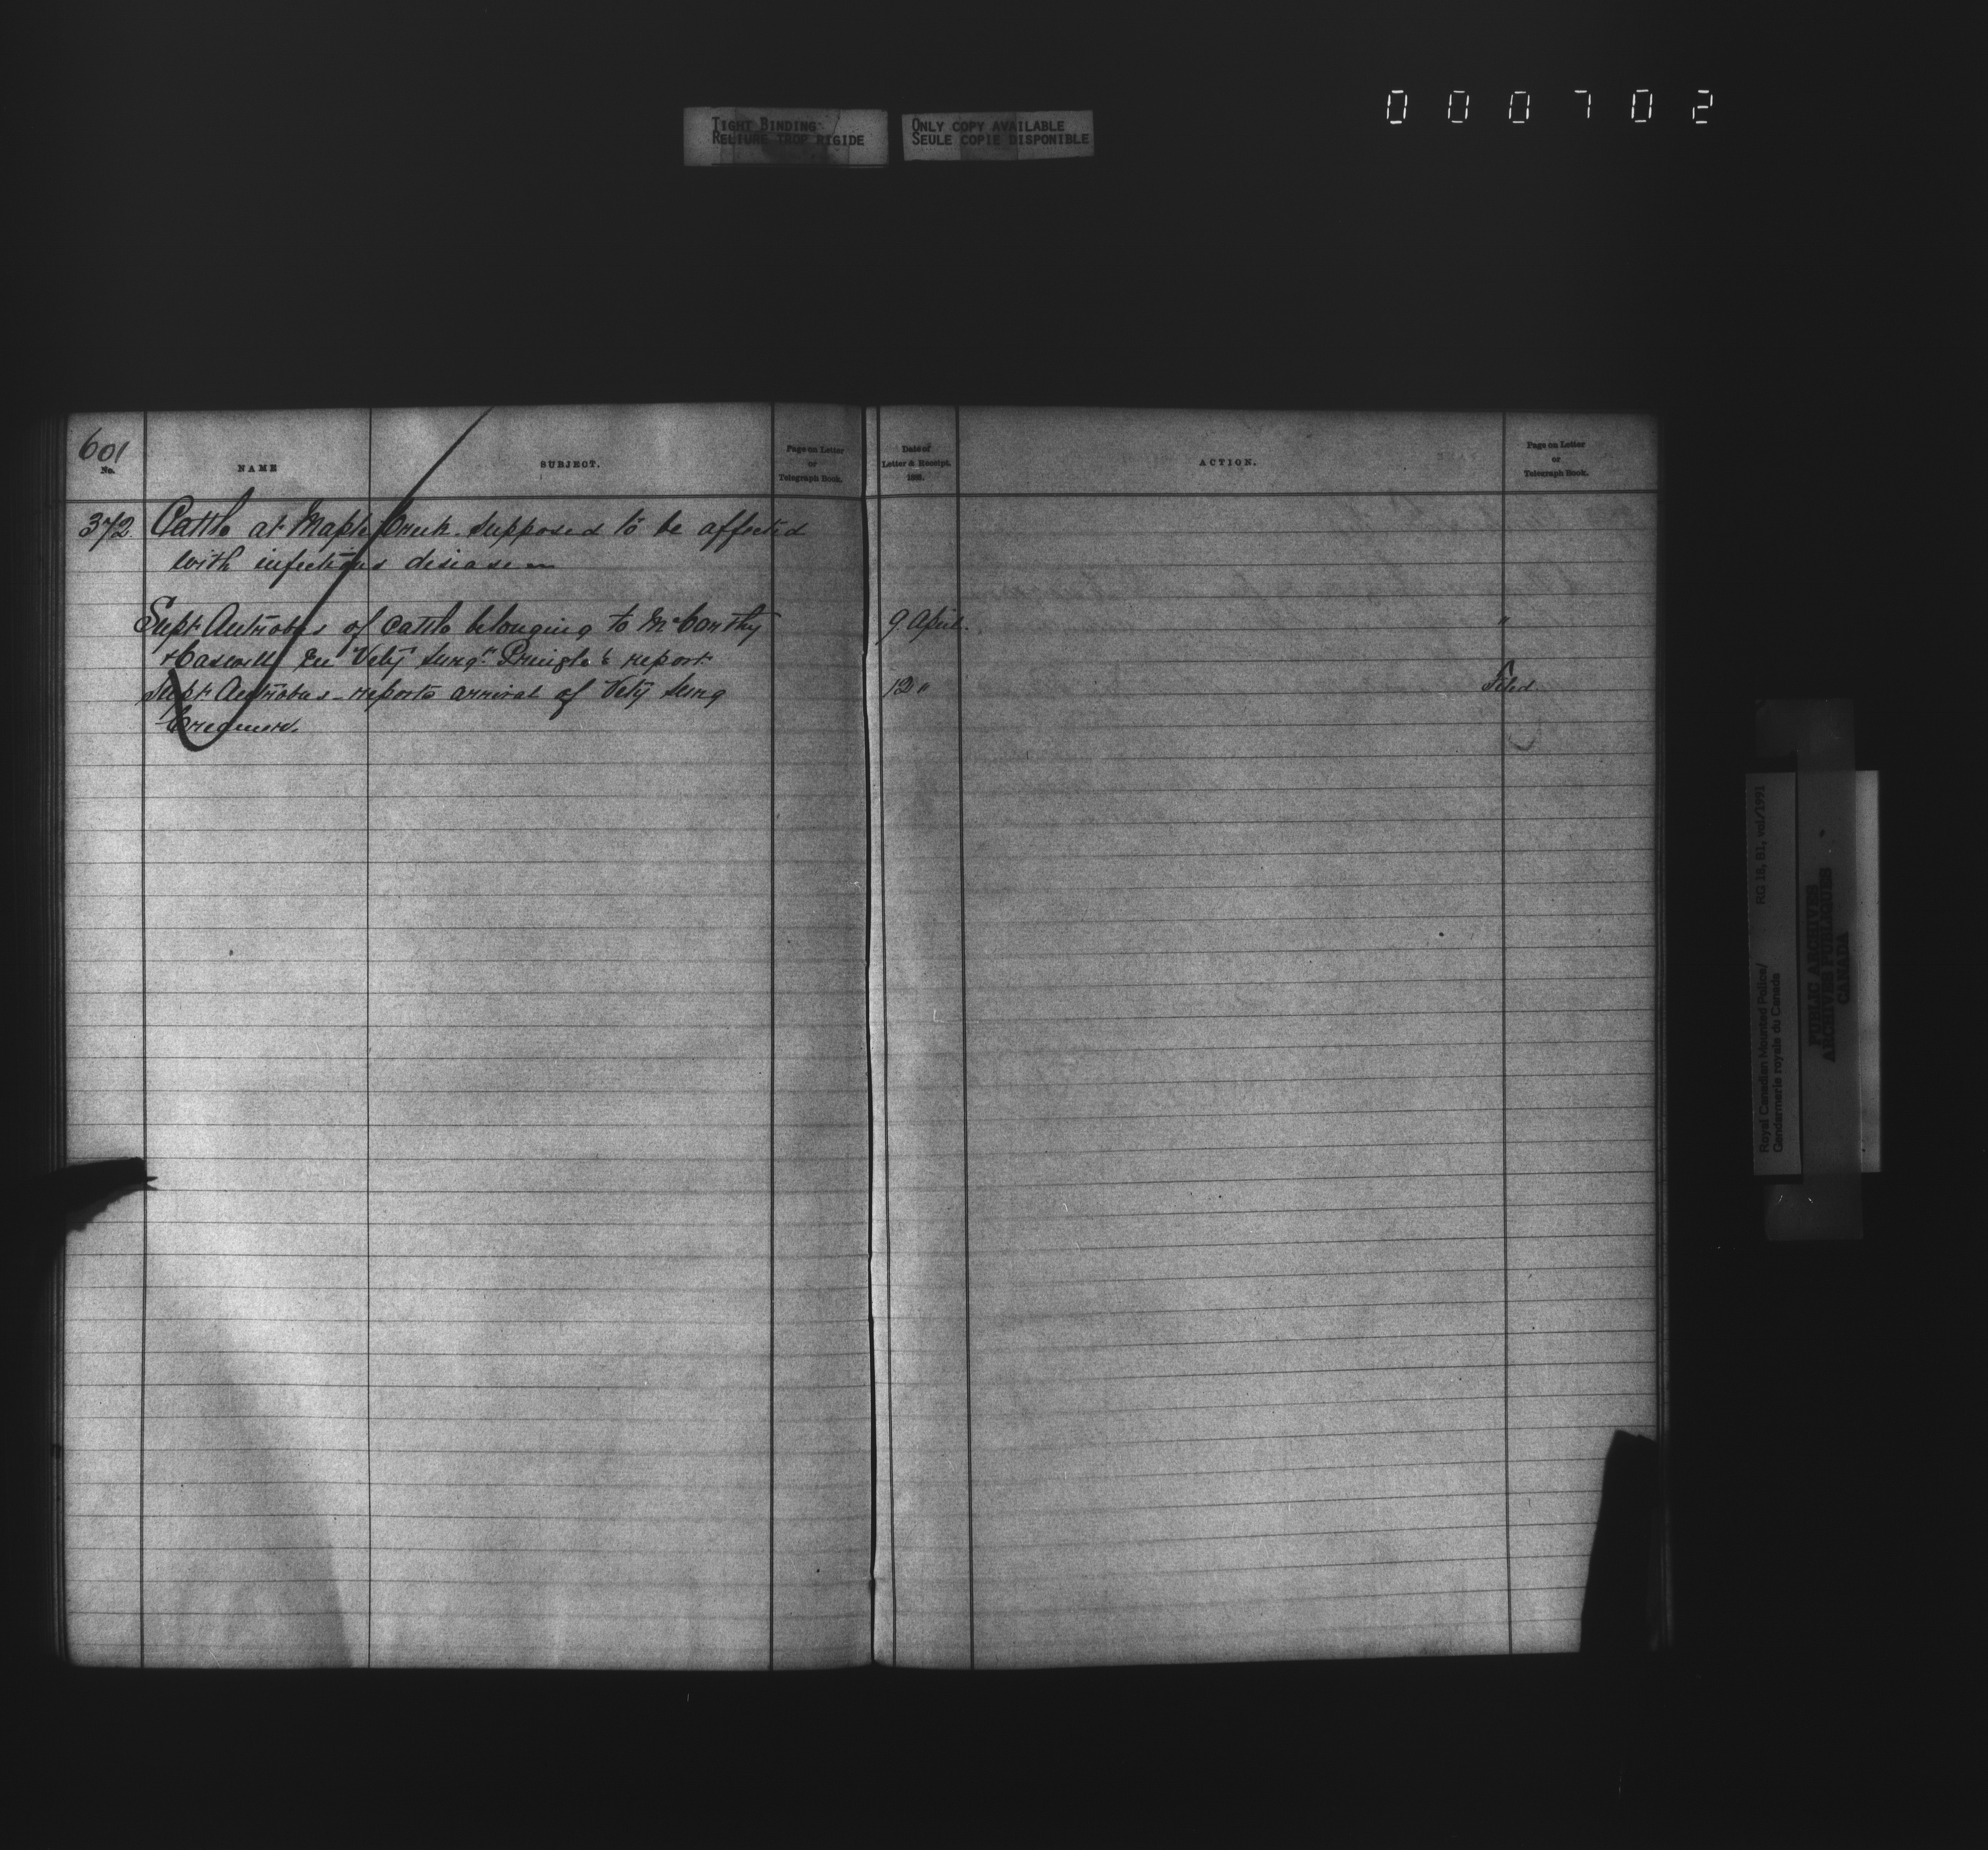 000702
TIGHT BINDING
RELIURE TROP RIGIDE
ONLY COPY AVAILABLE
SEULE COPIE DISPONIBLE
601
No.
NAME
SUBJECT.
Page on Letter
or
Telegraph Book.
Date of
Letter & Receipt.
188.
ACTION.
Page on Letter
or
Telegraph Book.
372 Cattle at Maple Creek supposed to be affected
with infectious disease
Supt Antrobus of cattle belonging to McCarthy 9 April. "
+ Caswell Vety Surgn Pringle's report
Supt Antrobus reports arrival of Vety Surg 12 " Filed
Creamer.
Royal Canadian Mounted Police/
Gendarmerie royale du Canada
RG 18, B1, vol/1991
PUBLIC ARCHIVES
ARCHIVES PUBLIQUES
CANADA